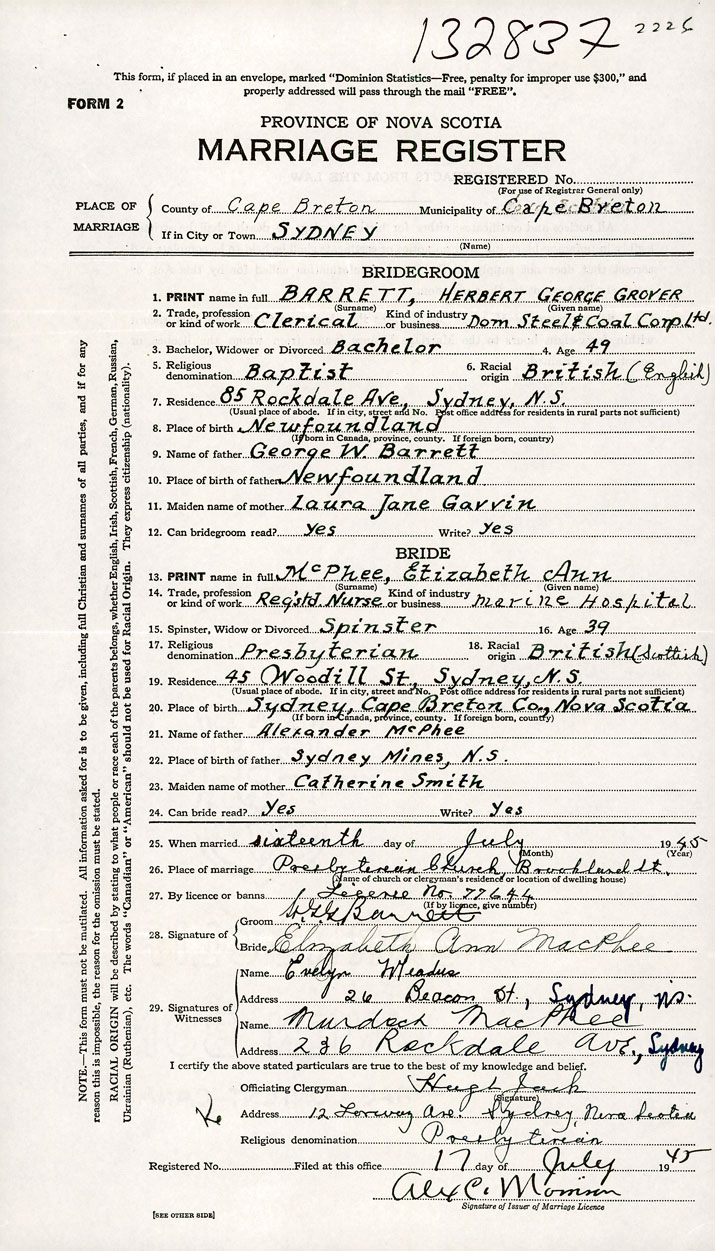 132837 2225
This form, if placed in an envelope, marked "Dominion Statistics—Free, penalty for improper use $300," and
properly addressed will pass through the mail "FREE".
FORM 2
PROVINCE OF NOVA SCOTIA
MARRIAGE REGISTER
REGISTERED No.
(For use of Registrar General only)
PLACE OF MARRIAGE
County of Cape Breton Municipality of Cape Breton
If in City or Town SYDNEY
(Name)
BRIDEGROOM
1. PRINT name in full BARRETT, HERBERT GEORGE GROVER
(Surname) (Given name)
2. Trade, profession or kind of work Clerical Kind of industry or business Dom Steel & Coal Corp. Ltd.
3. Bachelor, Widower or Divorced Bachelor 4. Age 49
5. Religious denomination Baptist 6. Racial origin British (English)
7. Residence 85 Rockdale Ave, Sydney, N.S.
(Usual place of abode. If in city, street and No. Post office address for residents in rural parts not sufficient)
8. Place of birth Newfoundland
(If born in Canada, province, county. If foreign born, country)
9. Name of father George W. Barrett
10. Place of birth of father Newfoundland
11. Maiden name of mother Laura Jane Garvin
12. Can bridegroom read? Yes Write? Yes
BRIDE
13. PRINT name in full McPhee, Elizabeth Ann
(Surname) (Given name)
14. Trade, profession or kind of work Reg'st'd. Nurse Kind of industry or business Marine Hospital
15. Spinster, Widow or Divorced Spinster 16. Age 39
17. Religious denomination Presbyterian 18. Racial origin British (Scottish)
19. Residence 45 Woodill St, Sydney, N.S.
(Usual place of abode. If in city, street and No. Post office address for residents in rural parts not sufficient)
20. Place of birth Sydney, Cape Breton Co., Nova Scotia
(If born in Canada, province, county. If foreign born, country)
21. Name of father Alexander McPhee
22. Place of birth of father Sydney Mines, N.S.
23. Maiden name of mother Catherine Smith
24. Can bride read? Yes Write? Yes
25. When married sixteenth day of July 1945
(Month) (Year)
26. Place of marriage Presbyterian Church, Brookland St.
(Name of church or clergyman's residence or location of dwelling house)
27. By licence or banns License No. 77644
(If by licence, give number)
28. Signature of
Groom Barrett
Bride Elizabeth Ann MacPhee
29. Signatures of Witnesses
Name Evelyn Meadus
Address 26 Beacon St, Sydney, N.S.
Name Murdoch MacPhee
Address 236 Rockdale Ave., Sydney
I certify the above stated particulars are true to the best of my knowledge and belief.
Officiating Clergyman Hugh Jack
(Signature)
Address 12 Ave. Sydney, Nova Scotia
Religious denomination Presbyterian
Registered No. Filed at this office 17 day of July 1945
Alex C. Morrison
Signature of Issuer of Marriage Licence
[SEE OTHER SIDE]
NOTE.—This form must not be mutilated. All information asked for is to be given, including full Christian and surnames of all parties, and if for any
reason this is impossible, the reason for the omission must be stated.
RACIAL ORIGIN will be described by stating to what people or race each of the parents belongs, whether English, Irish, Scottish, French, German, Russian,
Ukrainian (Ruthenian), etc. The words "Canadian" or "American" should not be used for Racial Origin. They express citizenship (nationality).